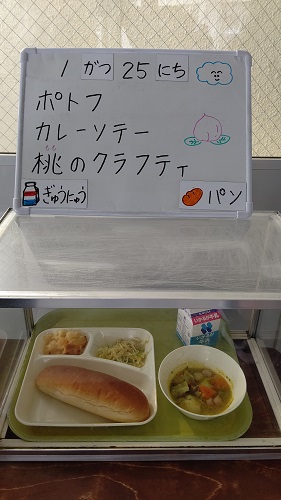 1 がつ 25 にち
ポトフ
カレーソテー
桃のクラフティ
もも
ぎゅうにゅう パン